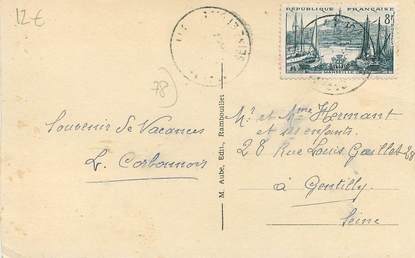 12€
RÉPUBLIQUE FRANÇAISE
8f
78
Souvenir de Vacances
L.
M. Aube, Edit., Rambouillet
Mr. et Mme Hermant
et ses enfants.
28 Rue Louis Gaillet 28
à Gentilly
Seine